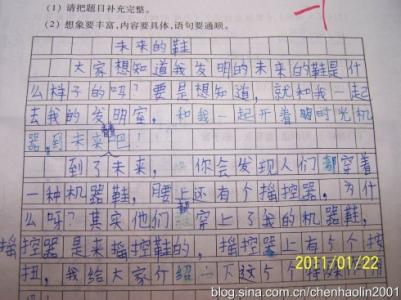 (1) 请把题目补充完整。
(2) 想象要丰富,内容要具体,语句要通顺。
未来的鞋
大家想知道我发明的未来的鞋是什
么样子的吗?要是想知道,就和我一起
去我的发明室,和我一起开着时光机
器,到未来吧!
到了未来,你会发现人们都穿着
一种机器鞋,腰上还有个摇控器。为什
么呀?其实他们都穿上了我的机器鞋,
摇控器是来摇控鞋的,摇控器上有5个按
扭,我给大家介绍一下这5个
2011/01/22
blog.sina.com.cn/chenhaolin2001